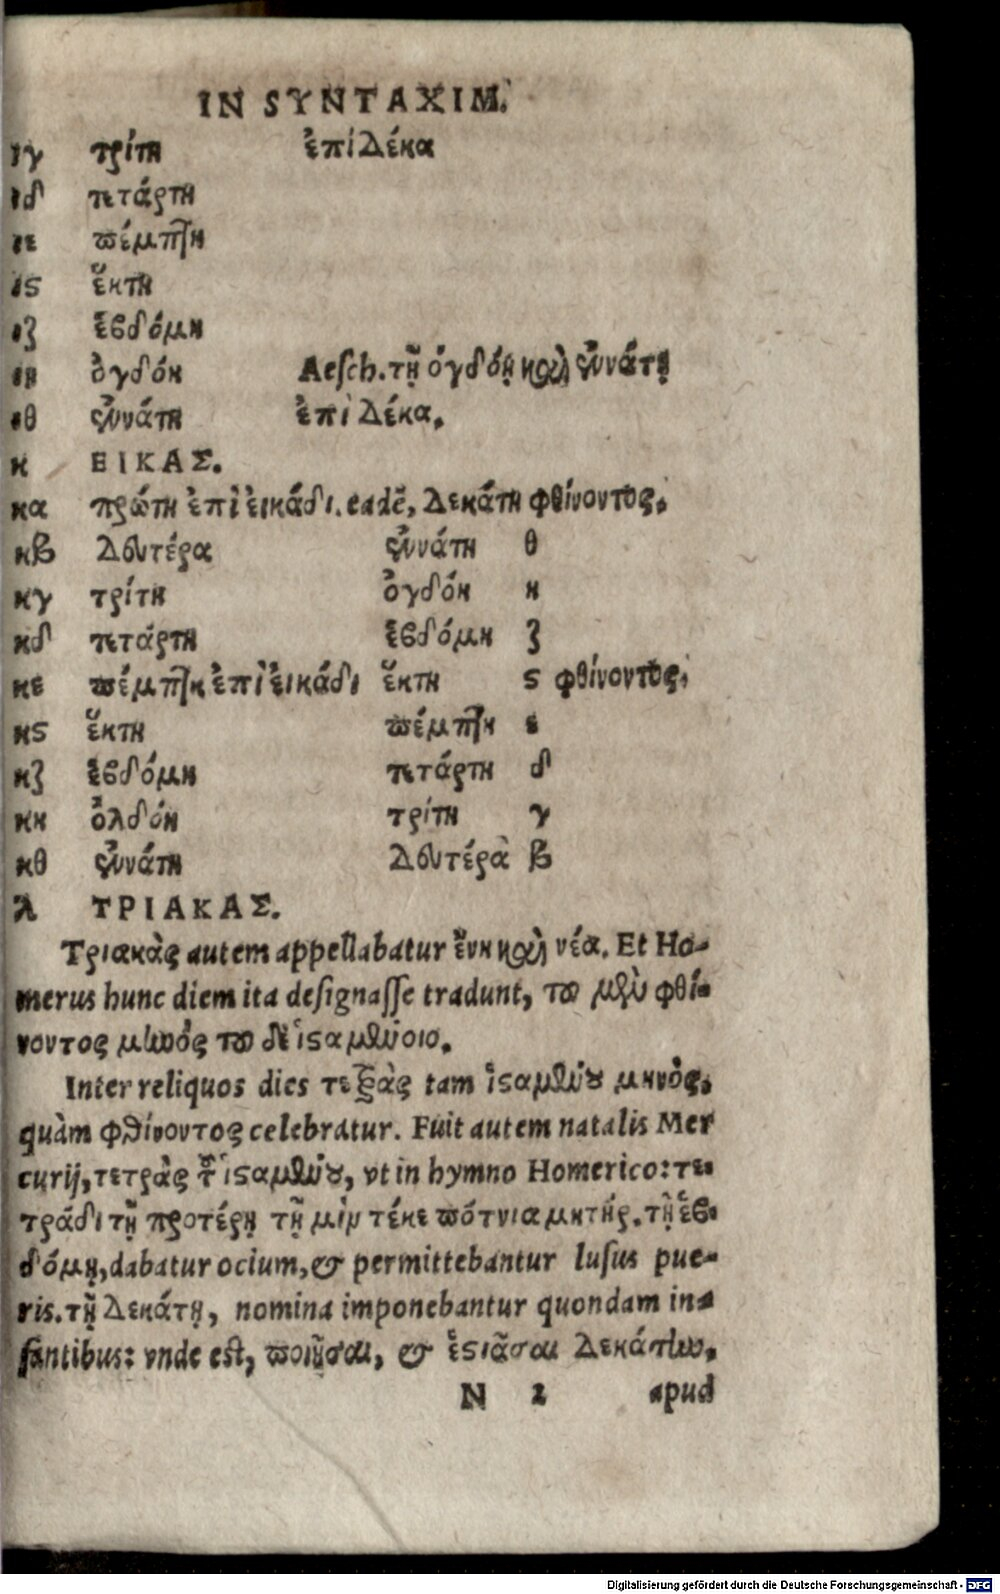 IN SYNTAXIM.
ιγ τρίτη ἐπὶ δέκα
ιδ τετάρτη
ιε πέμπτη
ις ἕκτη
ιζ ἑβδόμη
ιη ὀγδόη Aesch. τῇ ὀγδόῃ καὶ ἐννάτῃ
ιθ ἐννάτη ἐπὶ δέκα.
κ ΕΙΚΑΣ.
κα πρώτη ἐπὶ εἰκάδι. eadē, δεκάτη φθίνοντος.
κβ δευτέρα ἐννάτη θ
κγ τρίτη ὀγδόη η
κδ τετάρτη ἑβδόμη ζ
κε πέμπτη ἐπὶ εἰκάδι ἕκτη ς φθίνοντος.
κς ἕκτη πέμπτη ε
κζ ἑβδόμη τετάρτη δ
κη ὀλδόη τρίτη γ
κθ ἐννάτη δευτέρα β
λ ΤΡΙΑΚΑΣ.
Τριακὰς autem appellabatur ἕνη καὶ νέα. Et Ho-
merus hunc diem ita designasse tradunt, τοῦ μὲν φθί-
νοντος μηνὸς τοῦ δ' ἱσταμένοιο.
Inter reliquos dies τετρὰς tam ἱσταμένου μηνὸς,
quàm φθίνοντος celebratur. Fuit autem natalis Mer
curij, τετρὰς τοῦ ἱσταμένου, vt in hymno Homerico: τε-
τράδι τῇ προτέρῃ τῇ μὶν τέκε πότνια μητήρ. τῇ ἑβ-
δόμῃ, dabatur ocium, & permittebantur lusus pue-
ris. τῇ δεκάτῃ, nomina imponebantur quondam in-
fantibus: vnde est, ποιῆσαι, & ἑστιᾶσαι δεκάτην.
N 2 apud
Digitalisierung gefördert durch die Deutsche Forschungsgemeinschaft - DFG